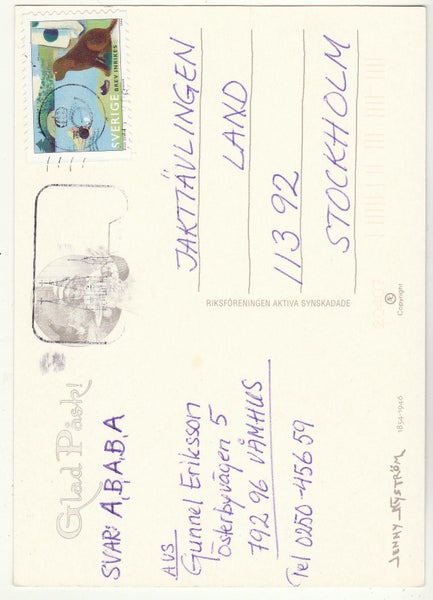 Glad Påsk!
SVAR: A, B, A, B, A
AVS
Gunnel Eriksson
Österbyvägen 5
792 96 VÅMHUS
Tel 0250-45659
JENNY NYSTRÖM 1854-1946
SVERIGE
BREV INRIKES
JAKTTÄVLINGEN
LAND
113 92
STOCKHOLM
RIKSFÖRENINGEN AKTIVA SYNSKADADE
Copyright